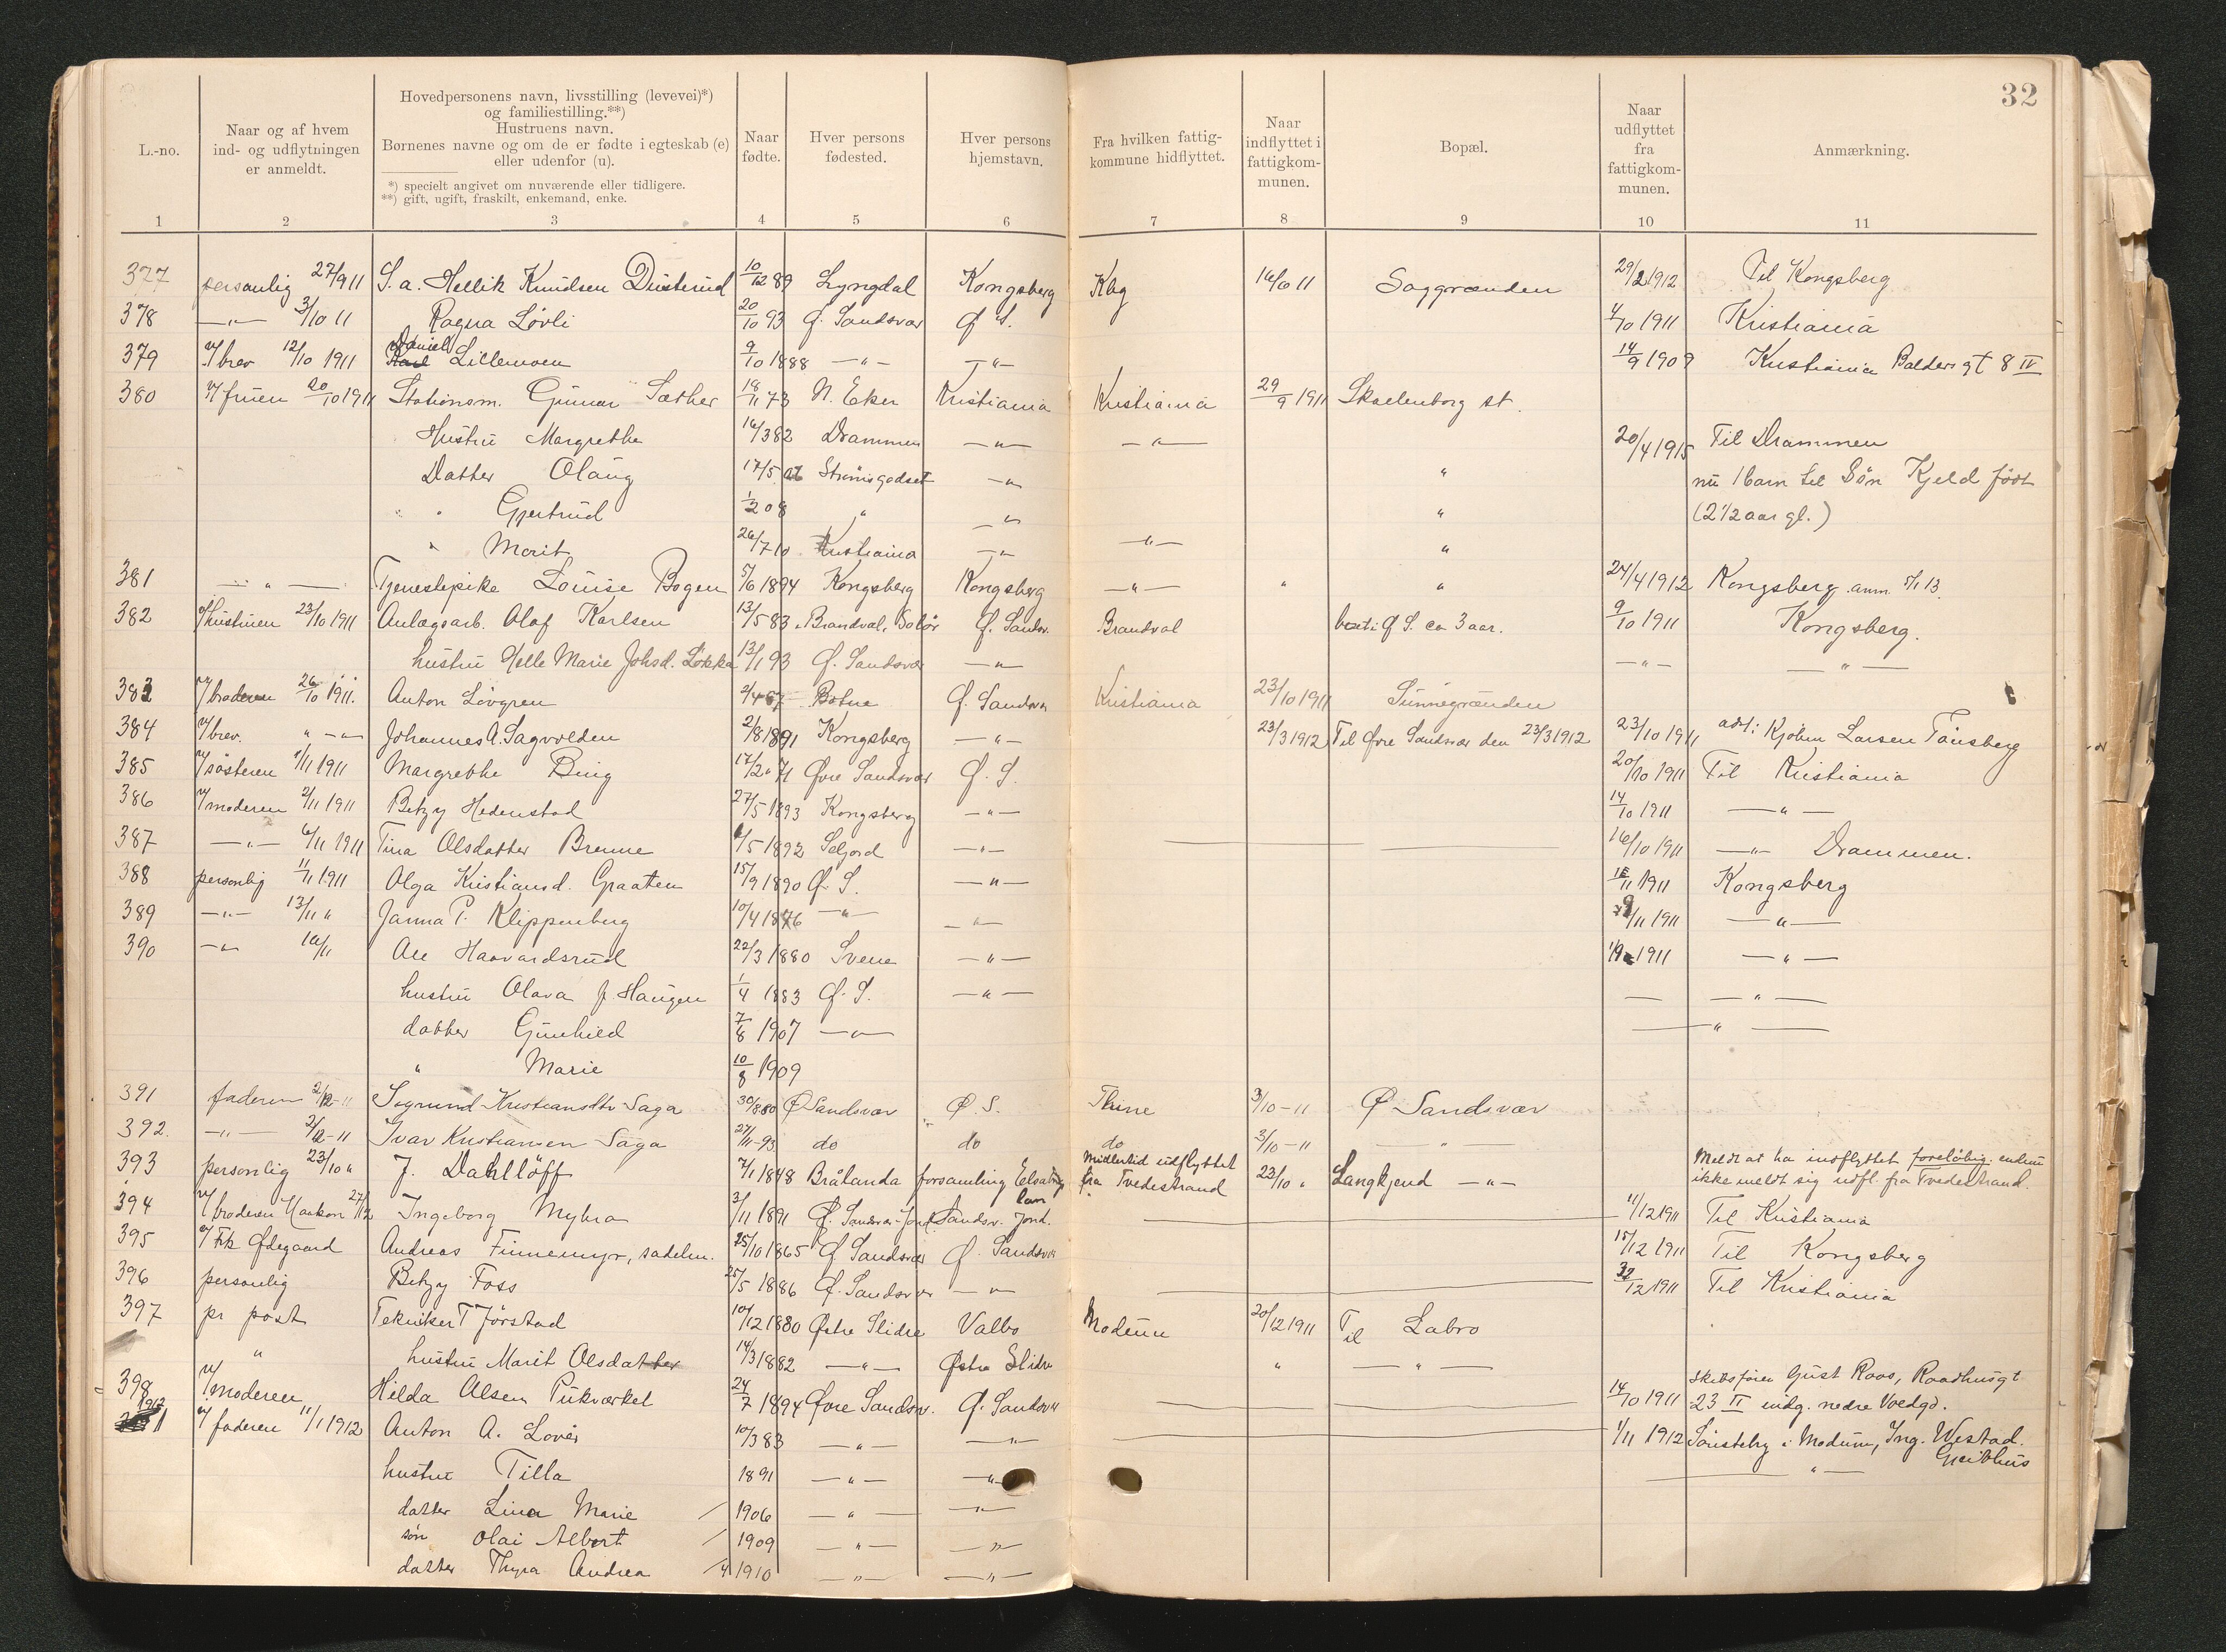 32
L.-no.
Naar og af hvem ind- og udflytningen er anmeldt.
Hovedpersonens navn, livsstilling (levevei)*) og familiestilling.**)
Hustruens navn.
Børnenes navne og om de er fødte i egteskab (e) eller udenfor (u).
*) specielt angivet om nuværende eller tidligere.
**) gift, ugift, fraskilt, enkemand, enke.
Naar fødte.
Hver persons fødested.
Hver persons hjemstavn.
Fra hvilken fattigkommune hidflyttet.
Naar indflyttet i fattigkommunen.
Bopæl.
Naar udflyttet fra fattigkommunen.
Anmærkning.
1 2 3 4 5 6 7 8 9 10 11
377 personlig 27/9 11 S. a. Hellik Knudsen 10/12 89 Lyngdal Kongsberg Kbg 11 Saggrænden 29/2 1912 Til Kongsberg
378 —"— 3/10 11 Ragna Løvli 20/10 93 Ø. Sandsvær Ø S. 4/10 1911 Kristiania
379 v/ brev 12/10 1911 Daniel Lillemoen 9/10 1888 —"— —"— 14/9 1909 Kristiania Balders gt 8 IV
380 v/ fruen 20/10 1911 Stationsm. Gunnar Sæther 18/11 73 N. Eker Kristiania Kristiania 29/9 1911 Skollenborg st.
Hustru Margrethe 16/3 82 Drammen —"— —"— 20/4 1915 Til Drammen
Datter Olaug 17/5 06 Strømsgodset —"— " nu 1 barn til Søn Kjeld født
" " Gjertrud 1/2 08 " —"— " (2 1/2 aar gl.)
" Marit 26/7 10 Kristiania —"— —"— "
381 —"— Tjenestepike Louise Bogen 5/6 1894 Kongsberg Kongsberg —"— " " 24/4 1912 Kongsberg anm. 13.
382 v/ hustruen 23/10 1911 Anlægsarb. Olaf Karlsen 13/5 83 Brandval, Solør Ø. Sandsv. Brandval boet i Ø S. ca 3 aar. 9/10 1911 Kongsberg.
hustru Helle Marie Johsd. Løkka 13/1 93 Ø. Sandsvær —"— —"— —"—
383 v/ broderen 26/10 1911. Anton Løvgren 2/4 67 Botne Ø. Sandsvær Kristiania 23/10 1911 Sunnegrænden
384 v/ brev. " —"— Johannes A. Sagvolden 2/8 1891 Kongsberg —"— 23/3 1912 Til Øvre Sandsvær den 23/3 1912 23/10 1911 adr: Kjøbm Larsen Tønsberg
385 v/ søsteren 1/11 1911 Margrethe Bing 17/2 71 Øvre Sandsvær Ø. S. 20/10 1911 Til Kristiania
386 v/ moderen 2/11 1911 Betzy Hedenstad 27/5 1893 Kongsberg —"— 14/10 1911 —"—
387 —"— 6/11 1911 Tina Olsdatter Brenne 6/5 1892 Seljord —"— 16/10 1911 —"— Drammen.
388 personlig 11/11 1911 Olga Kristiansd. Graaten 15/9 1890 Ø. S. —"— 11 1911 Kongsberg
389 —"— 13/11 " Janna P. Klippenberg 10/4 1876 —"— —"— /11 1911 —"—
390 —"— 16/11 Ole Haavardsrud 22/3 1880 Svene —"— 1911 —"—
hustru Olava J. Haugen 1/4 1883 Ø. S. —"— — —"—
datter Gunhild 7/8 1907 —"— —"—
" Marie 10/8 1909
391 faderen 2/12 - 11 Sigrund Kristiansdtr Saga 30/8 80 Ø Sandsvær Ø. S. 3/10 - 11 Ø Sandsvær
392. —"— 2/12 - 11 Ivar Kristiansen Saga 27/11 - 93 do do do 3/10 - 11 —"—
393 personlig 23/10 " J. Dahllöff 7/1 1848 Brålanda forsamling Elfsborgs län Midlertid udflyttet fra Tvedestrand 23/10 " Langkjend —"— Meldt at ha indflyttet foreløbig. endnu ikke meldt sig udfl. fra Tvedestrand.
394 v/ broderen Haakon 27/12 Ingeborg Myhra 3/11 1891 Ø. Sandsvær Jond. Sandsv. Jond. 11/12 1911 Til Kristiania
395 v/ Frk Ødegaard Andreas Finnemyr, sadelm. 25/10 1865 Ø Sandsvær Ø. Sandsvær 15/12 1911 Til Kongsberg
396 personlig Betzy Foss 25/5 1886 Ø. Sandsvær —"— /12 1911 Til Kristiania
397 pr post Tekniker T Jørstad 10/12 1880 Østre Slidre Valbo Modum 20/12 1911 Til Labro
" hustru Marit Olsdatter 14/3 1882 —"— Østre Slidre " —"—
398 v/ moderen Hilda Olsen Pukværket 24/7 1894 Øvre Sandsv. Ø. Sandsvær 14/10 1911 Skibsfører Gust Roos, Raadhusgt 23 II indg. nedre Voldgd.
1912 1 v/ faderen 11/1 1912 Anton A. Lovér 10/3 83 —"— —"— 1/11 1912 i Modum, Ing. Westad. Geithus
hustru Tilla 1891 —"— —"— —"—
datter Lina Marie 1906 —"— —"—
søn Olai Albert 1909 —"— —"—
datter Thyra Andrea 1910 —"— —"—